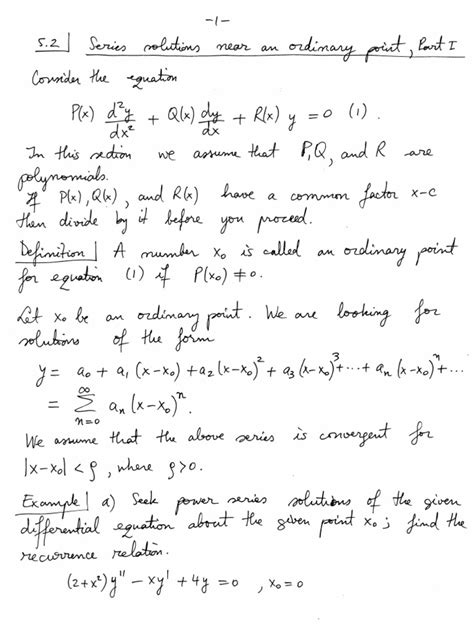 -1-
5.2 Series solutions near an ordinary point, Part I
Consider the equation
P(x) d²y/dx² + Q(x) dy/dx + R(x) y = 0 (1).
In this section we assume that P, Q, and R are
polynomials.
If P(x), Q(x), and R(x) have a common factor x-c
then divide by it before you proceed.
Definition A number x₀ is called an ordinary point
for equation (1) if P(x₀) ≠ 0.
Let x₀ be an ordinary point. We are looking for
solutions of the form
y = a₀ + a₁(x-x₀) + a₂(x-x₀)² + a₃(x-x₀)³ + ... + aₙ(x-x₀)ⁿ + ...
= ∑_{n=0}^{∞} aₙ(x-x₀)ⁿ.
We assume that the above series is convergent for
|x-x₀| < ρ, where ρ>0.
Example a) Seek power series solutions of the given
differential equation about the given point x₀; find the
recurrence relation.
(2+x²)y'' - xy' + 4y = 0 , x₀=0